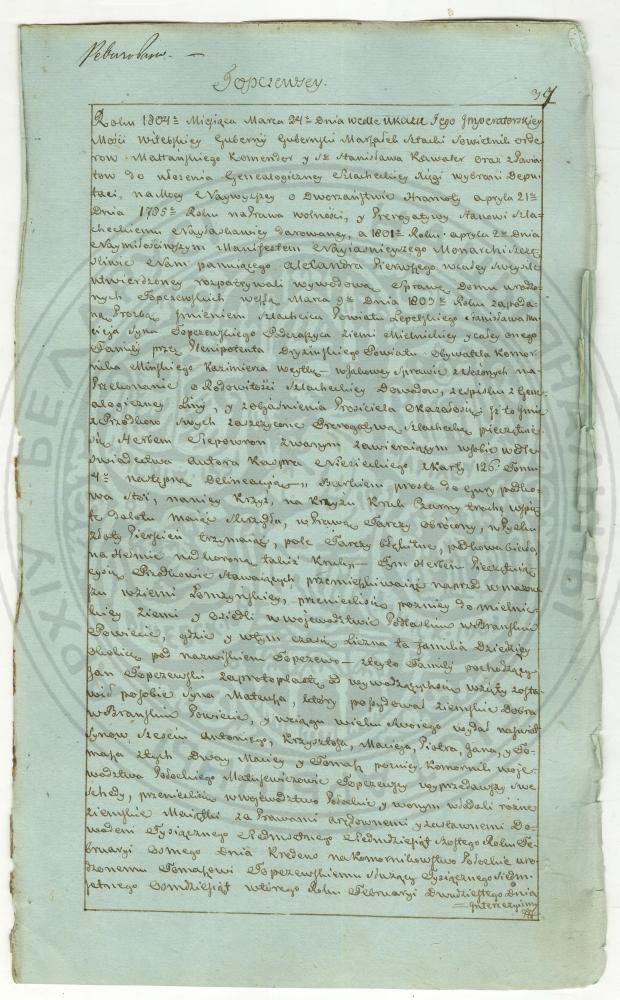 Topczewscy.
37
Roku 1804º Miesiąca Marca 24º Dnia wedle UKAZU Jego Imperatorskiey
Mości Witebskiey Gubernij Gubernski Marszałek Sztacki Sowietnik orde-
row Maltańskiego Komendor y Sº Stanisława Kawaler oraz z Powia-
tow do ułożenia Genealogiczney Szlacheckiey Xięgi wybrani Depu-
taci, na Mocy Naywyższey o Dworzaństwie Hramoty apryla 21º
Dnia 1785º Roku na Prawa wolności, y Prerogatywy Stanowi Szla-
checkiemu Nayłaskawiey darowaney, a 1801º Roku apryla 2º Dnia
Naymiłościwszym Manifestem Nayiaśnieyszego Monarchi Szczę-
śliwie Nam panuiącego Alexandra Pierwszego w całey swey sile
utwierdzoney rozpatrywali wywodową Sprawę Domu urodzo-
nych Topczewskich weszłą Marca 9º Dnia 1803º Roku za poda-
ną Prozbą Imieniem Szlachcica Powiatu Lepelskiego Stanisława Ma-
cieja Syna Topczewskiego Podczaszyca Ziemi Mielnickiey y całey onego
Familij przez Plenipotenta Dryzinskiego Powiatu Obywatela Komor-
nika Mińskiego Kazimierza Weytka — w takowey Sprawie z złożonych na
Przekonanie o Rodowitości Szlacheckiey Dowodow, z opisku z Gene-
alogiczney Linij, y z obiaśnienia Prosiciela Okazało się: Iż to Imie
z Przodkow swych zaszczycone Prerogatywą Szlachecką pieczętuie
się Herbem Slepowron zwanym zawieraiącym w sobie wedle
swiadectwa Autora Kaspra Niesieckiego z Karty 126. Tomu
4º następną Delineacyą, Barkiem prosto do Gury podko-
wa Stoi, na niey Krzyż, na Krzyżu Kruk Czarny trochę wspię-
te do lotu maiąc Skrzydła, w Prawą Tarczy obrocony, w Pysku
złoty Pierścień trzymaiąc, pole Tarczy błękitne, podkowa biała,
na Hełmie nad koroną takiż Kruk, — Tym Herbem Pieczętuią-
cy się Przodkowie Stawaiących przemieszkiwaiąc naprzod w Mazow-
szu w Ziemi Łomżyńskiey, przenieśli się pozniey do Mielnic-
kiey Ziemi y osiedli w Woiewodztwie Podlaskim w Branskim
Powiecie, gdzie y w tym czasie Liczna ta Familia Dziedziczy
okolicę pod nazwiskiem Topczewo — z teyto Familij pochodzący
Jan Topczewski za protoplastę od wywodzących się wzięty zosta-
wił po sobie Syna Mateusza, ktory posiadował Ziemskie Dobra
w Branskim Powiecie, y w ciągu wieku swoiego wydał na świat
Synow Sześciu Antoniego, Krzysztofa, Macieja, Piotra, Jana, y To-
masza z tych Dway Maciey y Tomasz pozniey Komornik woie-
wodztwa Połockiego Mateuszewicze Topczewscy wyprzedawszy swe
Schedy, przenieśli się w woiewodztwo Połockie y w onym władali rożne
Ziemskie Maiątki za Prawami aręzdownemi y zastawnemi Do-
wodem Tysiącznego Siedmsetnego Siedmdziesiąt szostego Roku Fe-
bruaryi Osmego Dnia Kredens na Komornikowstwo Połockie uro-
dzonemu Tomaszowi Topczewskiemu służący Tysiącznego Siedm-
setnego Osmdziesiąt wtorego Roku Februaryi Dwudziestego Dnia
= Intercyzyiny